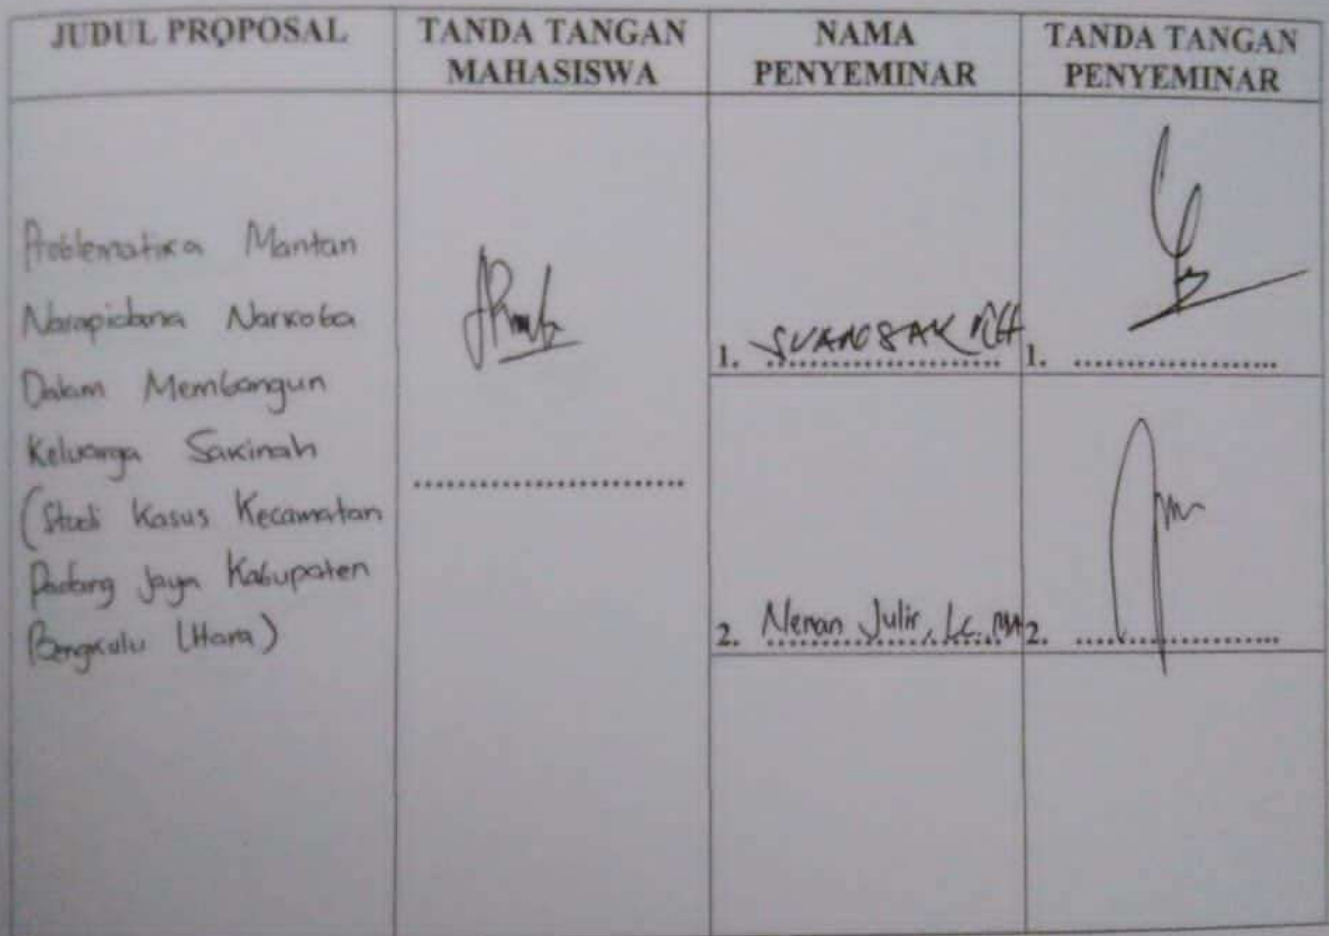 JUDUL PROPOSAL
TANDA TANGAN
MAHASISWA
NAMA
PENYEMINAR
TANDA TANGAN
PENYEMINAR
Problematika Mantan
Narapidana Narkoba
Dalam Membangun
Keluarga Sakinah
(Studi Kasus Kecamatan
Padang Jaya Kabupaten
Bengkulu Utara)
1.
1.
2. Nenan Julir, Lc. MA
2.